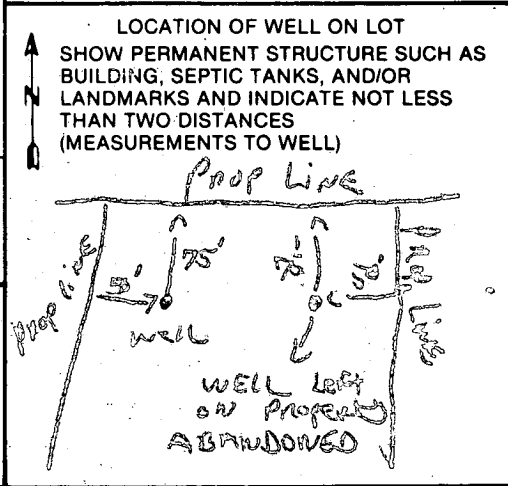 LOCATION OF WELL ON LOT
SHOW PERMANENT STRUCTURE SUCH AS
BUILDING, SEPTIC TANKS, AND/OR
N LANDMARKS AND INDICATE NOT LESS
THAN TWO DISTANCES
(MEASUREMENTS TO WELL)
PROP LINE
prop line
75'
75'
PROP LINE
50'
well
WELL Left
ON Property
ABANDONED